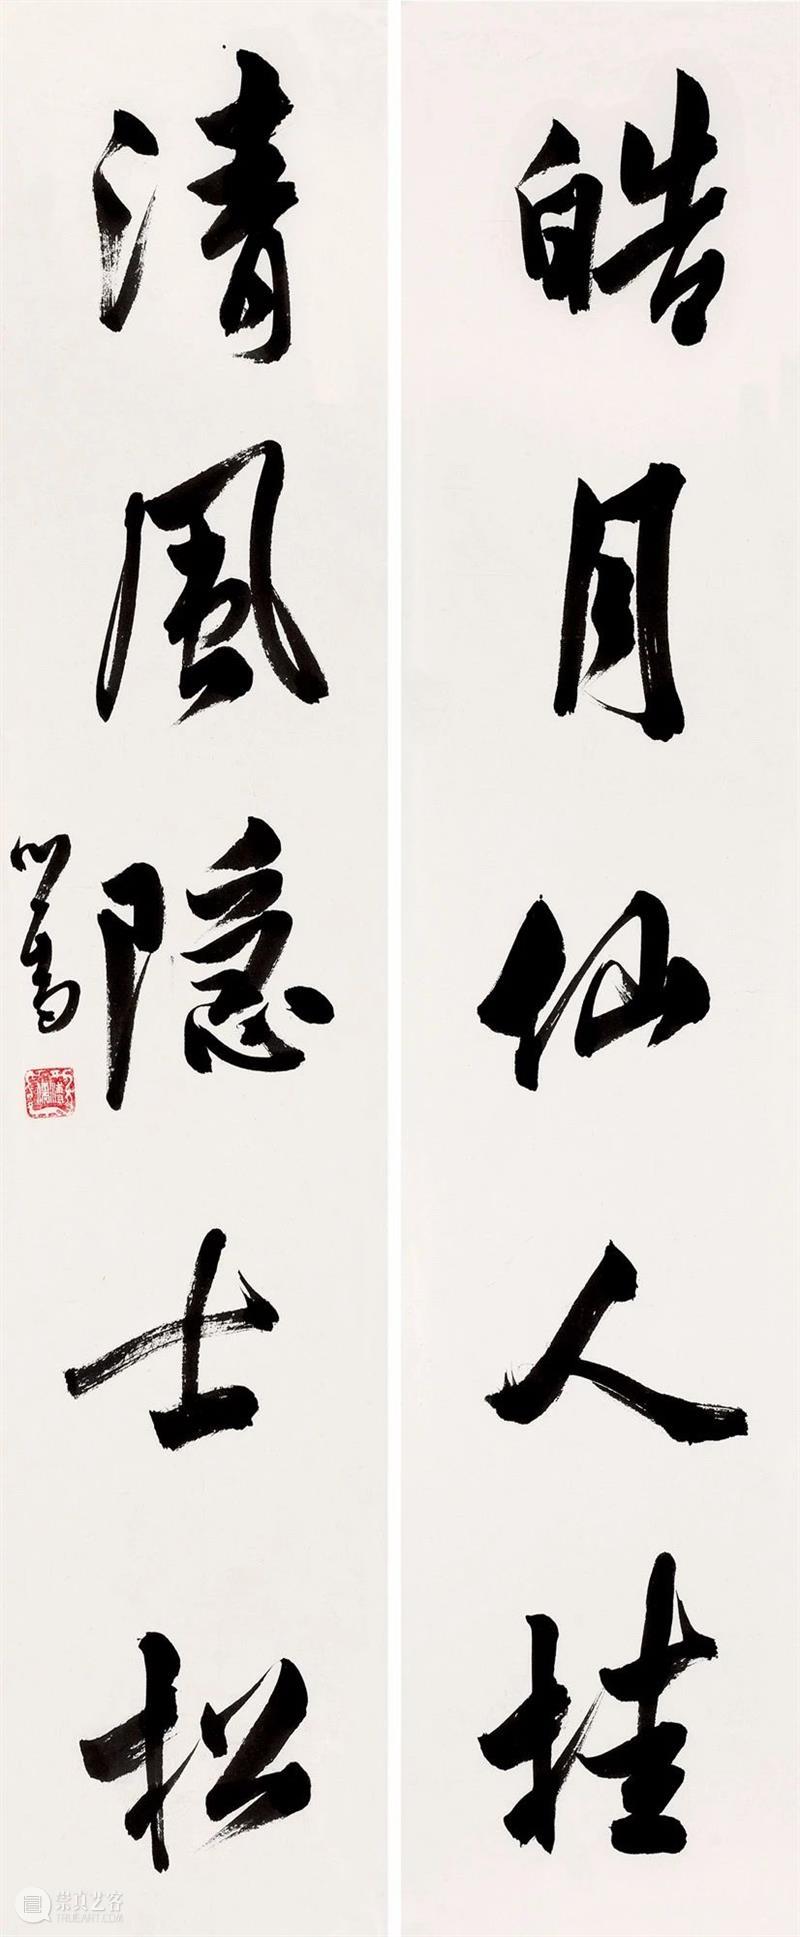 皓月仙人桂
清風隱士松
心畬
崇真艺客
TRUEART.COM